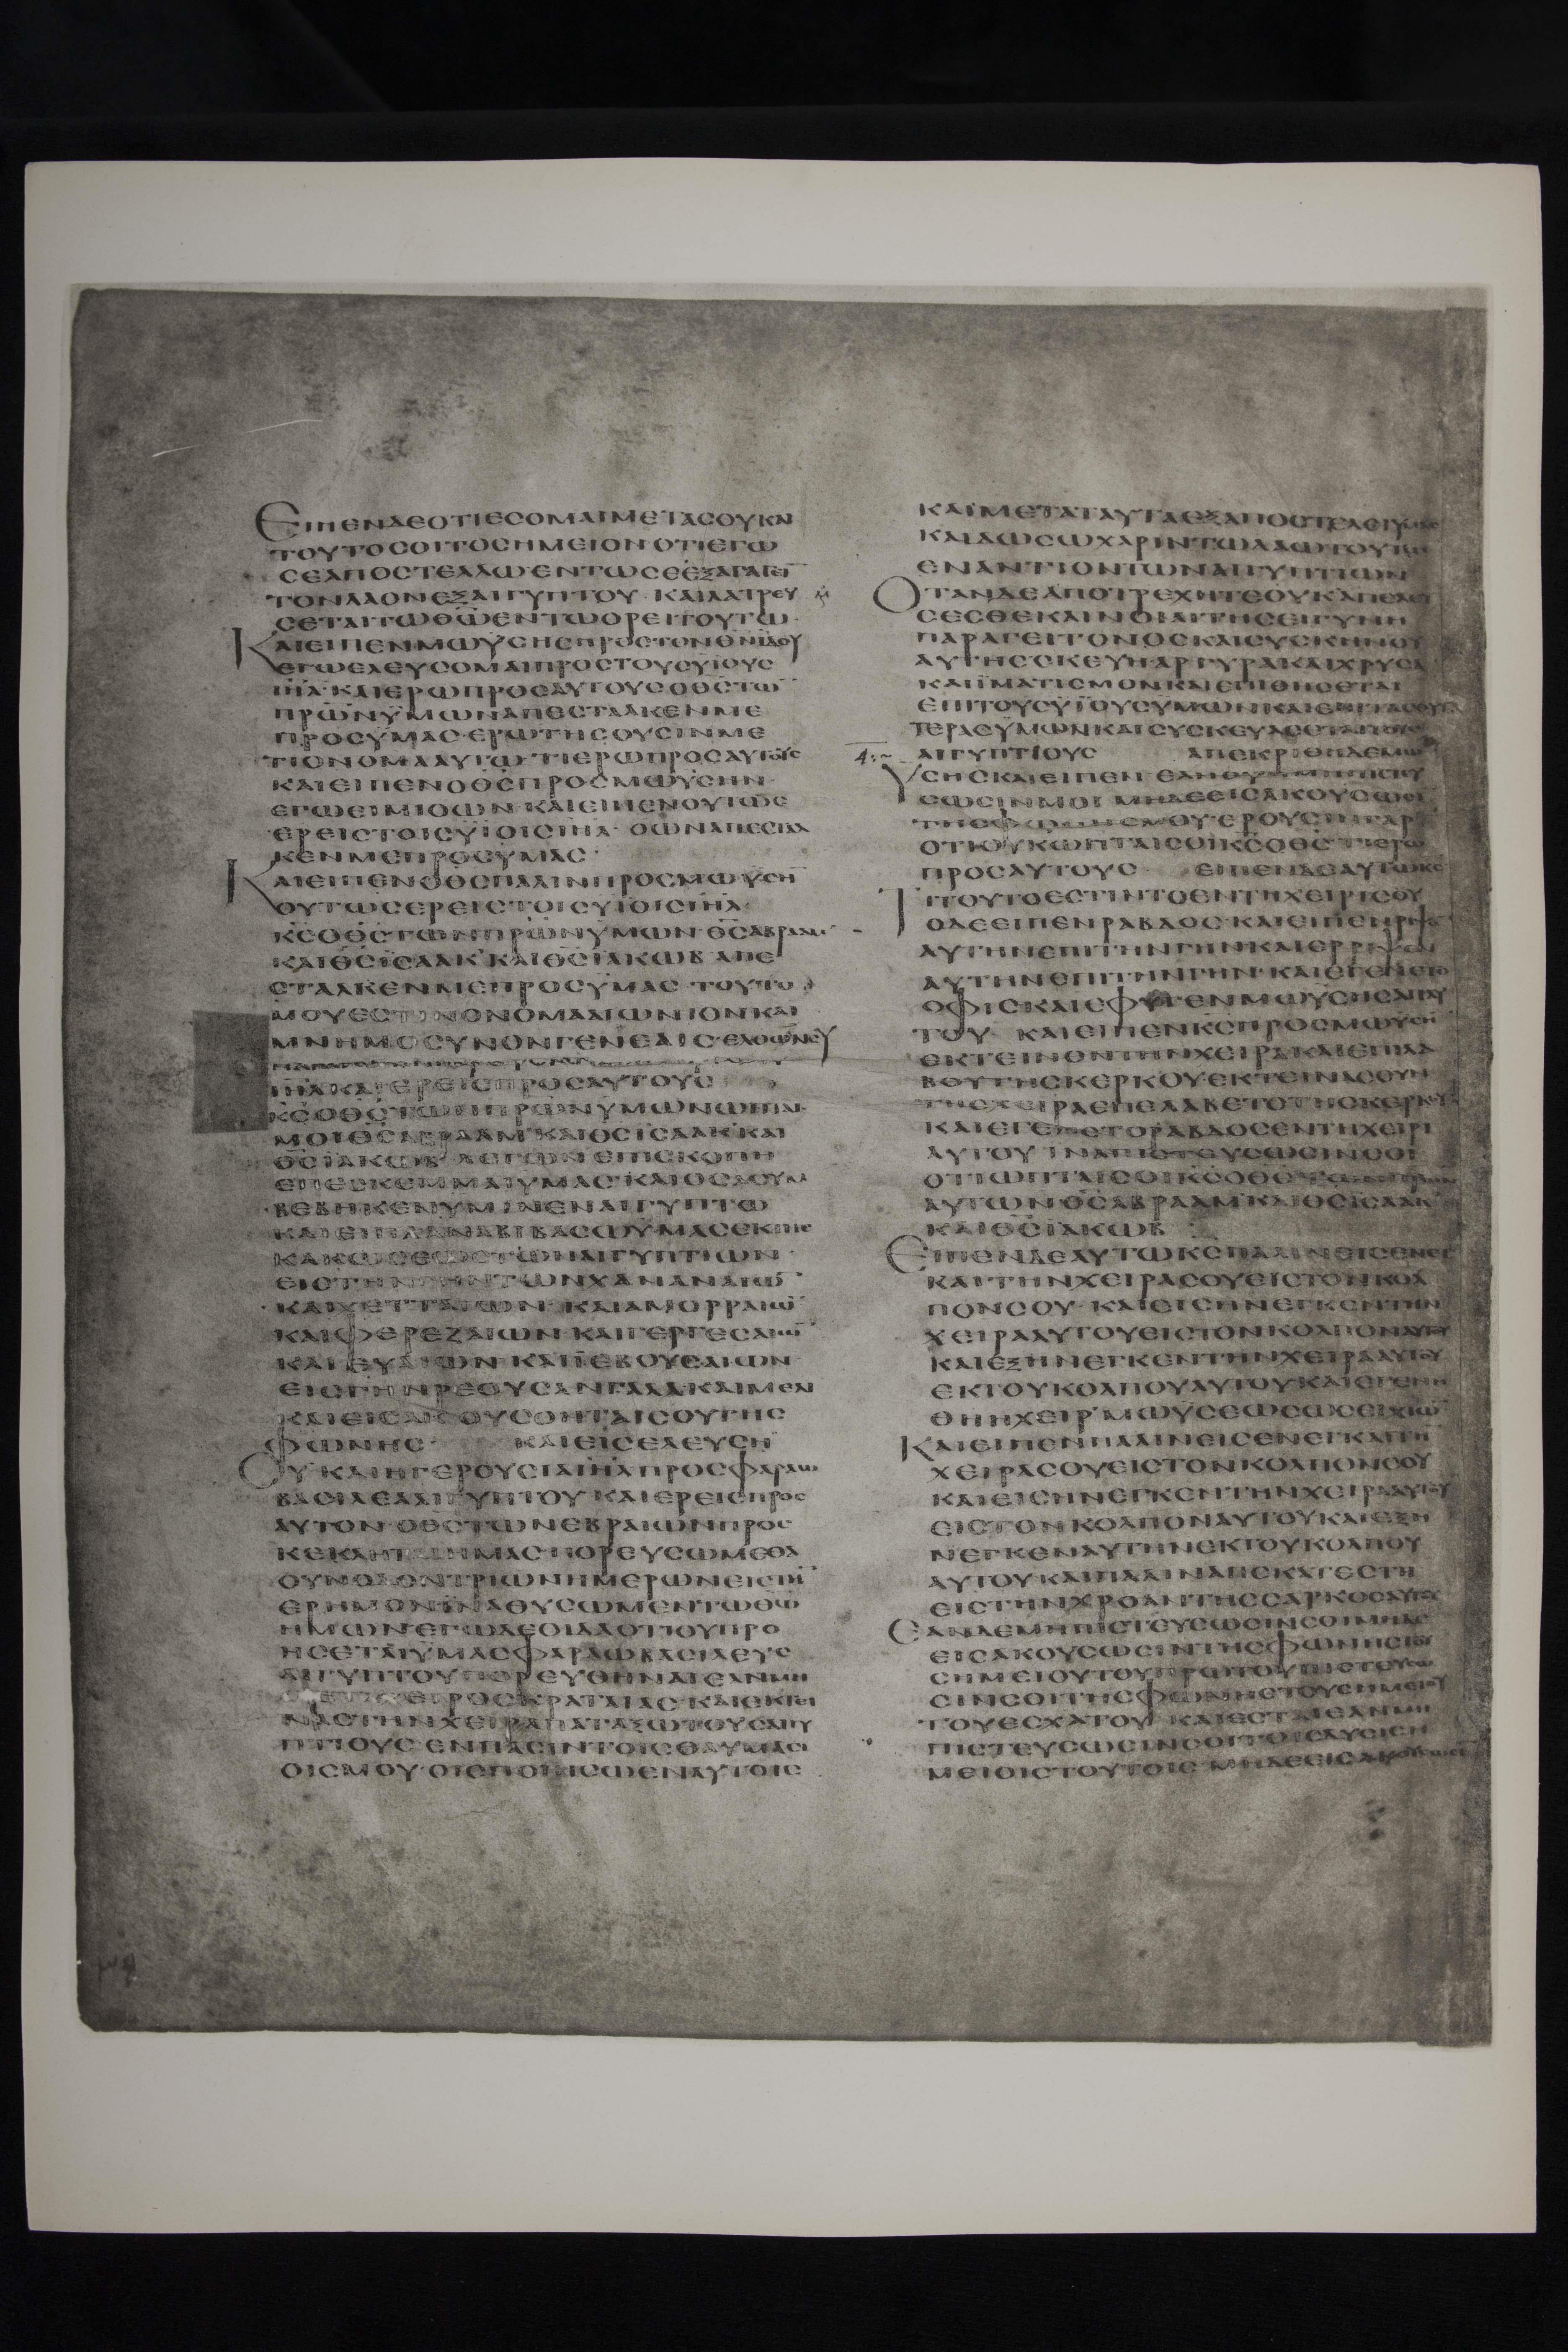 ΕΙΠΕΝΔΕΟΤΙΕСΟΜΑΙΜΕΤΑСΟΥΚΑΙ
ΤΟΥΤΟСΟΙΤΟСΗΜΕΙΟΝΟΤΙΕΓΩ
СΕΑΠΟСΤΕΛΛΩΕΝΤΩСΕΕΞΑΓΑΓΕΙ̅
ΤΟΝΛΑΟΝΕΞΑΙΓΥΠΤΟΥ ΚΑΙΛΑΤΡΕΥ
СΕΤΑΙΤΩΘΩ̅ΕΝΤΩΟΡΕΙΤΟΥΤΩ
ΚΑΙΕΙΠΕΝΜΩΫСΗСΠΡΟСΤΟΝΘΝ̅ΙΔΟΥ
ΕΓΩΕΛΕΥСΟΜΑΙΠΡΟСΤΟΥСΥΪΟΥС
ΙΗΛ̅·ΚΑΙΕΡΩΠΡΟСΑΥΤΟΥСΟΘС̅ΤΩ̅
ΠΡΩ̅ΝΫΜΩΝΑΠΕСΤΑΛΚΕΝΜΕ
ΠΡΟСΫΜΑС·ΕΡΩΤΗСΟΥСΙΝΜΕ
ΤΙΟΝΟΜΑΑΥΤΩ·ΤΙΕΡΩΠΡΟСΑΥΤΟΥС
ΚΑΙΕΙΠΕΝΟΘС̅ΠΡΟСΜΩΫСΗΝ
ΕΓΩΕΙΜΙΟΩΝ·ΚΑΙΕΙΠΕΝΟΥΤΩС
ΕΡΕΙСΤΟΙСΥΪΟΙСΙΗΛ̅· ΟΩΝΑΠΕСΤΑΛ
ΚΕΝΜΕΠΡΟСΫΜΑС·
ΚΑΙΕΙΠΕΝΟΘС̅ΠΑΛΙΝΠΡΟСΜΩΫСΗ̅
ΟΥΤΩСΕΡΕΙСΤΟΙСΥΪΟΙСΙΗΛ̅·
ΚС̅ΟΘС̅ΤΩΝΠΡΩ̅ΝΫΜΩΝ·ΘС̅ΑΒΡΑΑΜ
ΚΑΙΘС̅ΪСΑΑΚ·ΚΑΙΘС̅ΪΑΚΩΒ ΑΠΕ
СΤΑΛΚΕΝΜΕΠΡΟСΫΜΑС·ΤΟΥΤΟ
ΜΟΥΕСΤΙΝΟΝΟΜΑΑΙΩΝΙΟΝΚΑΙ
ΜΝΗΜΟСΥΝΟΝΓΕΝΕΑΙС·ΕΛΘΩΝСΥ
ΙΗΛ̅ΚΑΙΕΡΕΙСΠΡΟСΑΥΤΟΥС
ΚС̅ΟΘС̅ΤΩΝΠΡΩ̅ΝΫΜΩΝΩΠΤΑΙ
ΜΟΙΘС̅ΑΒΡΑΑΜ·ΚΑΙΘС̅ΪСΑΑΚ·ΚΑΙ
ΘС̅ΪΑΚΩΒ ΛΕΓΩΝΕΠΙСΚΟΠΗ
ΕΠΕСΚΕΜΜΑΙΫΜΑС·ΚΑΙΟСΑСΥΜ
ΒΕΒΗΚΕΝΫΜΙΝΕΝΑΙΓΥΠΤΩ
ΚΑΙΕΙΠΑΑΝΑΒΙΒΑСΩΫΜΑСΕΚΤΗС
ΚΑΚΩСΕΩСΤΩΝΑΙΓΥΠΤΙΩΝ
ΕΙСΤΗΝΓΗΝΤΩΝΧΑΝΑΝΑΙΩ̅
ΚΑΙΧΕΤΤΑΙΩΝ·ΚΑΙΑΜΟΡΡΑΙΩ̅
ΚΑΙΦΕΡΕΖΑΙΩΝ·ΚΑΙΓΕΡΓΕСΑΙΩ̅
ΚΑΙΕΥΑΙΩΝ·ΚΑΙΪΕΒΟΥСΑΙΩΝ
ΕΙСΓΗΝΡΕΟΥСΑΝΓΑΛΑ·ΚΑΙΜΕΛΙ
ΚΑΙΕΙСΑΚΟΥСΟΝΤΑΙСΟΥΤΗС
ΦΩΝΗС· ΚΑΙΕΙСΕΛΕΥСΗ
СΥ·ΚΑΙΗΓΕΡΟΥСΙΑΙΗΛ̅ΠΡΟСΦΑΡΑΩ
ΒΑСΙΛΕΑΑΙΓΥΠΤΟΥ·ΚΑΙΕΡΕΙСΠΡΟС
ΑΥΤΟΝ·ΟΘС̅ΤΩΝΕΒΡΑΙΩΝΠΡΟС
ΚΕΚΛΗΤΑΙΗΜΑС·ΠΟΡΕΥСΩΜΕΘΑ
ΟΥΝΟΔΟΝΤΡΙΩΝΗΜΕΡΩΝΕΙСΤΗ̅
ΕΡΗΜΟΝΪΝΑΘΥСΩΜΕΝΤΩΘΩ̅
ΗΜΩΝ·ΕΓΩΔΕΟΙΔΑΟΤΙΟΥΠΡΟ
ΗСΕΤΑΙΫΜΑСΦΑΡΑΩΒΑСΙΛΕΥС
ΑΙΓΥΠΤΟΥΠΟΡΕΥΘΗΝΑΙΕΑΝΜΗ
ΜΕΤΑΧΕΙΡΟСΚΡΑΤΑΙΑС·ΚΑΙΕΚΤΕΙ
ΝΑСΤΗΝΧΕΙΡΑΠΑΤΑΞΩΤΟΥСΑΙΓΥ
ΠΤΙΟΥС·ΕΝΠΑСΙΝΤΟΙСΘΑΥΜΑСΙ
ΟΙСΜΟΥ·ΟΙСΠΟΙΗСΩΕΝΑΥΤΟΙС
ΚΑΙΜΕΤΑΤΑΥΤΑΕΞΑΠΟСΤΕΛΕΙΫΜΑС
ΚΑΙΔΩСΩΧΑΡΙΝΤΩΛΑΩΤΟΥΤΩ
ΕΝΑΝΤΙΟΝΤΩΝΑΙΓΥΠΤΙΩΝ
ΟΤΑΝΔΕΑΠΟΤΡΕΧΗΤΕΟΥΚΑΠΕΛΕΥ
СΕСΘΕΚΑΙΝΟΙ·ΑΙΤΗСΕΙΓΥΝΗ
ΠΑΡΑΓΕΙΤΟΝΟСΚΑΙСΥСΚΗΝΟΥ
ΑΥΤΗССΚΕΥΗ·ΑΡΓΥΡΑΚΑΙΧΡΥСΑ
ΚΑΙΪΜΑΤΙСΜΟΝΚΑΙΕΠΙΘΗСΕΤΑΙ
ΕΠΙΤΟΥСΥΪΟΥСΫΜΩΝΚΑΙΕΠΙΤΑСΘΥΓΑ
ΤΕΡΑСΫΜΩΝΚΑΙСΥСΚΕΥΑСΕΤΑΙΤΟΥС
ΑΙΓΥΠΤΙΟΥС ΑΠΕΚΡΙΘΗΔΕΜΩ
ΫСΗСΚΑΙΕΙΠΕΝ·ΕΑΝΟΥΝΜΗΠΙСΤΕΥ
СΩСΙΝΜΟΙ ΜΗΔΕΕΙСΑΚΟΥСΩСΙ
ΤΗСΦΩΝΗСΜΟΥ·ΕΡΟΥСΙΝΓΑΡ
ΟΤΙΟΥΚΩΠΤΑΙСΟΙΚС̅ΟΘС̅·ΤΙΕΡΩ
ΠΡΟСΑΥΤΟΥС ΕΙΠΕΝΔΕΑΥΤΩΚС̅
ΤΙΤΟΥΤΟΕСΤΙΝΤΟΕΝΤΗΧΕΙΡΙСΟΥ
ΟΔΕΕΙΠΕΝΡΑΒΔΟС·ΚΑΙΕΙΠΕΝΡΙΨΟ
ΑΥΤΗΝΕΠΙΤΗΝΓΗΝΚΑΙΕΡΡΙΨΕΝ
ΑΥΤΗΝΕΠΙΤΗΝΓΗΝ·ΚΑΙΕΓΕΝΕΤΟ
ΟΦΙС·ΚΑΙΕΦΥΓΕΝΜΩΫСΗСΑΠΑΥ
ΤΟΥ· ΚΑΙΕΙΠΕΝΚС̅ΠΡΟСΜΩΥСΗ̅
ΕΚΤΕΙΝΟΝΤΗΝΧΕΙΡΑ·ΚΑΙΕΠΙΛΑ
ΒΟΥΤΗСΚΕΡΚΟΥ·ΕΚΤΕΙΝΑСΟΥΝ
ΤΗΝΧΕΙΡΑΕΠΕΛΑΒΕΤΟΤΗСΚΕΡΚΟΥ
ΚΑΙΕΓΕΝΕΤΟΡΑΒΔΟСΕΝΤΗΧΕΙΡΙ
ΑΥΤΟΥ·ΪΝΑΠΙСΤΕΥСΩСΙΝСΟΙ
ΟΤΙΩΠΤΑΙСΟΙΚС̅ΟΘС̅
ΑΥΤΩΝΘС̅ΑΒΡΑΑΜ·ΚΑΙΘС̅ΪСΑΑΚ
ΚΑΙΘС̅ΪΑΚΩΒ :
ΕΙΠΕΝΔΕΑΥΤΩΚС̅ΠΑΛΙΝΕΙСΕΝΕΓ
ΚΑΙΤΗΝΧΕΙΡΑСΟΥΕΙСΤΟΝΚΟΛ
ΠΟΝСΟΥ·ΚΑΙΕΙСΗΝΕΓΚΕΝΤΗΝ
ΧΕΙΡΑΑΥΤΟΥΕΙСΤΟΝΚΟΛΠΟΝΑΥΤΟΥ
ΚΑΙΕΞΗΝΕΓΚΕΝΤΗΝΧΕΙΡΑΑΥΤΟΥ
ΕΚΤΟΥΚΟΛΠΟΥΑΥΤΟΥ·ΚΑΙΕΓΕΝΗ
ΘΗΗΧΕΙΡ·ΜΩΥСΕΩСΩСΕΙΧΙΩ̅
ΚΑΙΕΙΠΕΝΠΑΛΙΝΕΙСΕΝΕΓΚΑΙΤΗ̅
ΧΕΙΡΑСΟΥΕΙСΤΟΝΚΟΛΠΟΝСΟΥ
ΚΑΙΕΙСΗΝΕΓΚΕΝΤΗΝΧΕΙΡΑΑΥΤΟΥ
ΕΙСΤΟΝΚΟΛΠΟΝΑΥΤΟΥΚΑΙΕΞΗ
ΝΕΓΚΕΝΑΥΤΗΝΕΚΤΟΥΚΟΛΠΟΥ
ΑΥΤΟΥΚΑΙΠΑΛΙΝΑΠΕΚΑΤΕСΤΗ
ΕΙСΤΗΝΧΡΟΑΝΤΗССΑΡΚΟСΑΥΤΟΥ
ΕΑΝΔΕΜΗΠΙСΤΕΥСΩСΙΝСΟΙΜΗΔΕ
ΕΙСΑΚΟΥСΩСΙΝΤΗСΦΩΝΗСΤΟΥ
СΗΜΕΙΟΥΤΟΥΠΡΩΤΟΥΠΙСΤΕΥСΩ
СΙΝСΟΙΤΗСΦΩΝΗСΤΟΥСΗΜΕΙΟΥ
ΤΟΥΕСΧΑΤΟΥ ΚΑΙΕСΤΑΙΕΑΝΜΗ
ΠΙСΤΕΥСΩСΙΝСΟΙΤΟΙСΔΥСΙСΗ
ΜΕΙΟΙСΤΟΥΤΟΙС·ΜΗΔΕΕΙСΑΚΟΥСΩСΙ